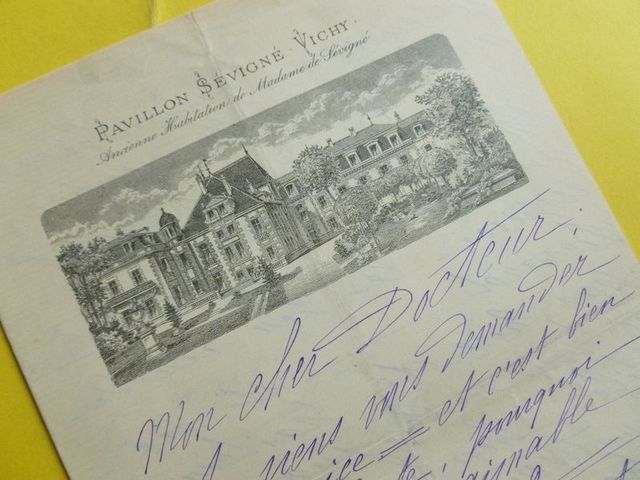 PAVILLON SÉVIGNÉ · VICHY ·
Ancienne Habitation de Madame de Sévigné
Mon cher Docteur,
viens vous demander
et c'est bien
pourquoi